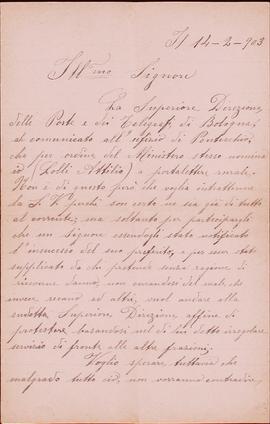 Il 14-2-903
Ill.mo Signore
La Superiore Direzione
delle Poste e dei Telegrafi di Bologna,
ha comunicato all'ufizio di
che per ordine del Ministero stesso nomina
io (Lolli Attilio) a portalettere rurale.
Non è di questo però che voglio intrattenere
la S. V. perchè son certo ne sia già di tutto
al corrente; ma soltanto per parteciparle
che un Signore essendogli stato notificato
l'innesso del suo e per cui stato
supplicato da chi pretende senza ragione di
risentirne danno, non curandosi del male che
invece recano ad altri, vuol andare alla
sudetta Superiore Direzione affine di
protestare basandosi nel di lui detto irregolare
servizio di fronte alle altre frazioni.
Voglio sperare tuttavia che
malgrado tutto ciò, non vorranno contradire